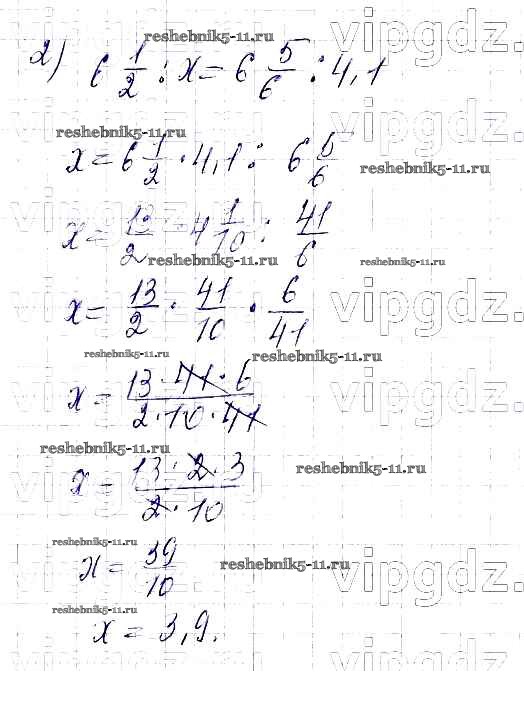 reshebnik5-11.ru
vipgdz.
2) 6 1/2 : x = 6 5/6 : 4,1
vipgdz.
reshebnik5-11.ru
x = 6 1/2 · 4,1 : 6 5/6
reshebnik5-11.ru
vipgdz.
x = 13/2 · 4 1/10 : 41/6
reshebnik5-11.ru
reshebnik5-11.ru
x = 13/2 · 41/10 · 6/41
vipgdz.
reshebnik5-11.ru
reshebnik5-11.ru
x = 13 · 41 · 6 / 2 · 10 · 41
vipgdz.
reshebnik5-11.ru
reshebnik5-11.ru
x = 13 · 2 · 3 / 2 · 10
vipgdz.
reshebnik5-11.ru
x = 39/10
reshebnik5-11.ru
vipgdz.
reshebnik5-11.ru
x = 3,9.
vipgdz.